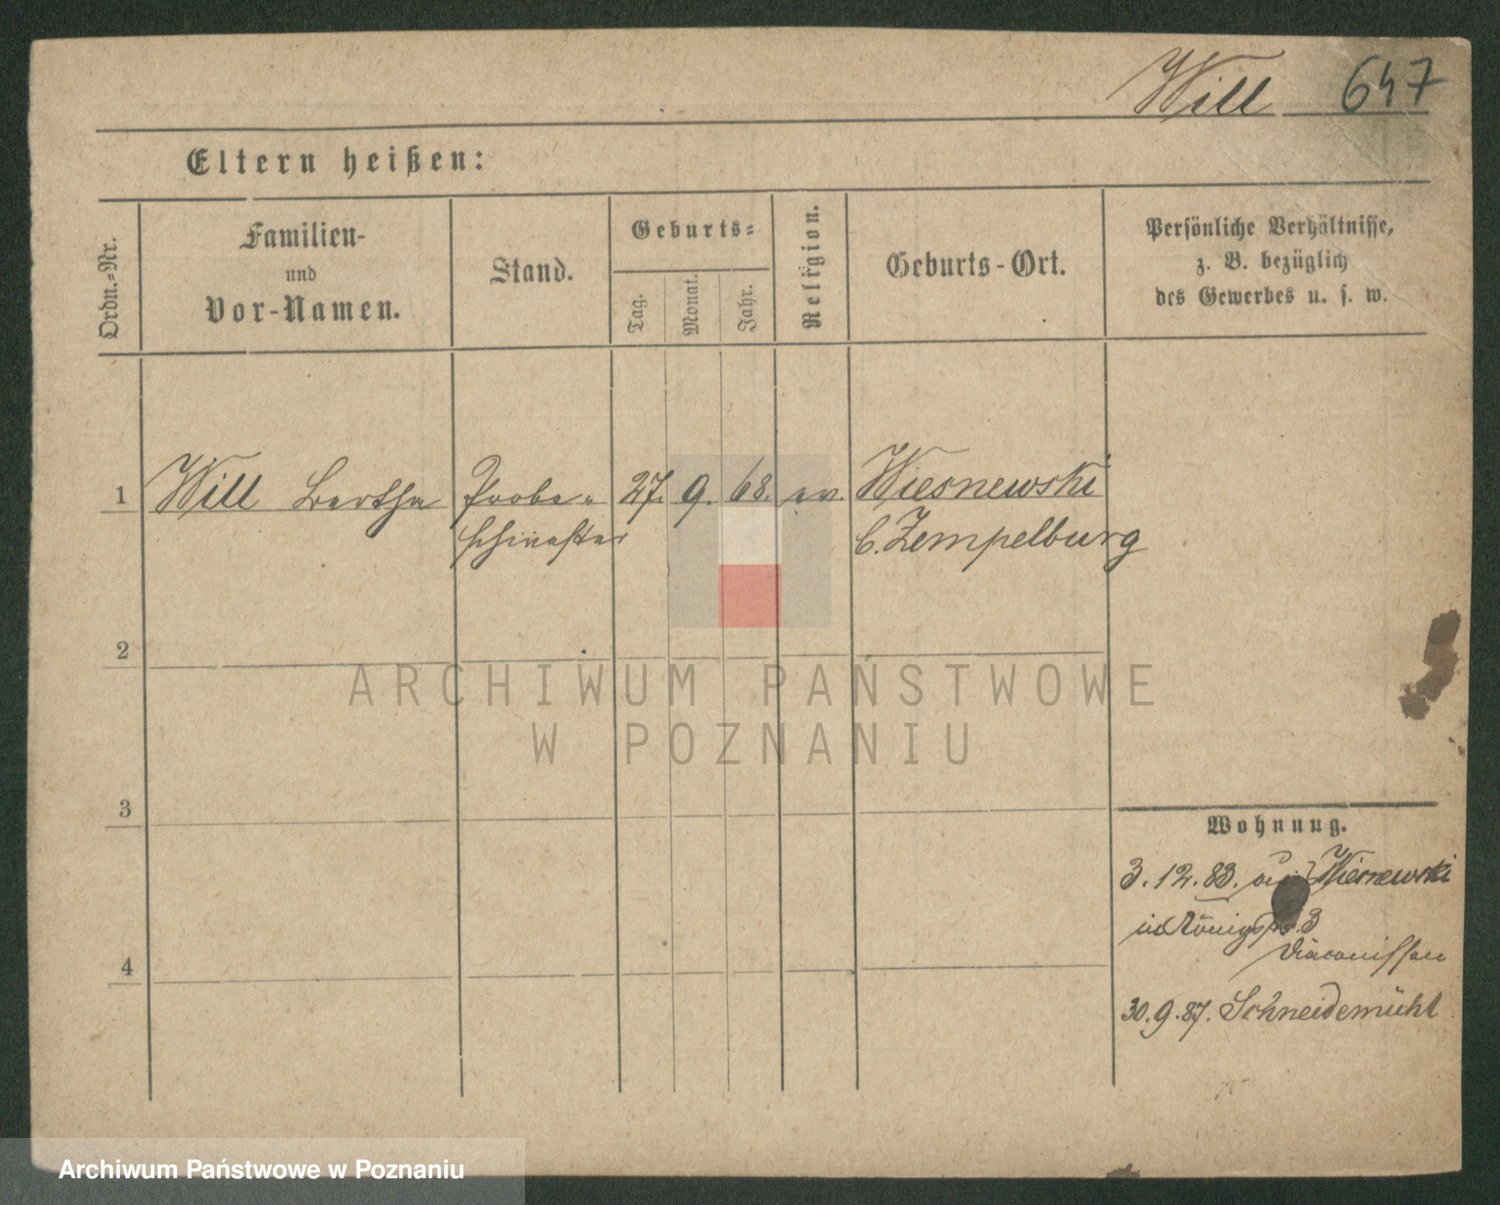 Will 647
Eltern heißen:
Ordn.-Nr.
Familien-
und
Vor-Namen.
Stand.
Geburts-
Tag.
Monat.
Jahr.
Religion.
Geburts-Ort.
Persönliche Verhältnisse,
z. B. bezüglich
des Gewerbes u. s. w.
1 Will Bertha Probe- 27. 9. 68. ev. Wiesnewski
schwester b. Zempelburg
2
3
4
Wohnung.
3.12.83. aus Wiesnewski
in Königstr. 3
Diaconissen
30.9.87. Schneidemühl
ARCHIWUM PAŃSTWOWE
W POZNANIU
Archiwum Państwowe w Poznaniu